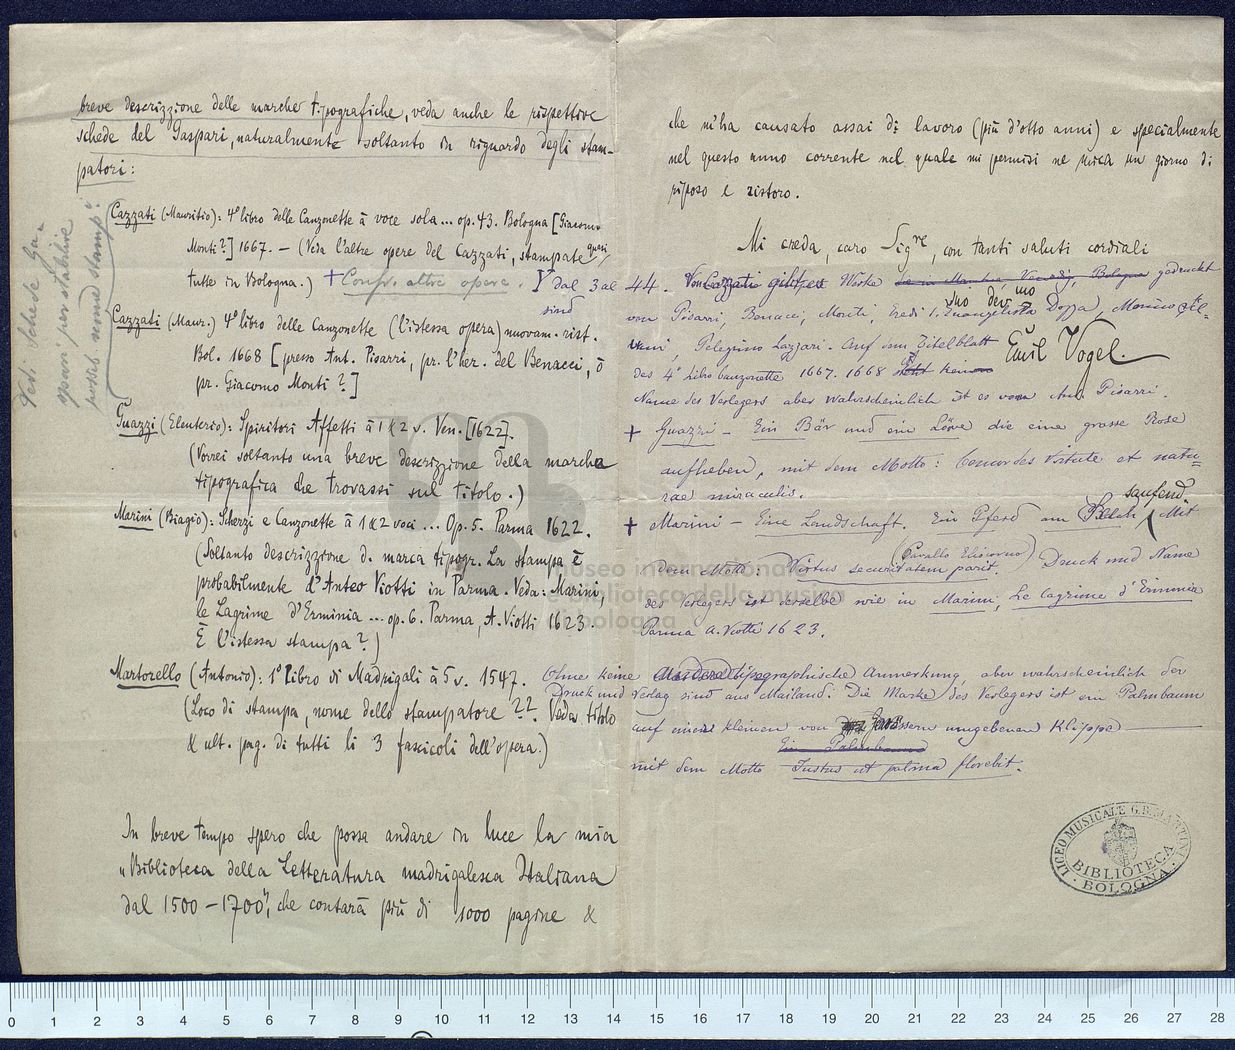 breve descrizzione delle marche tipografiche, veda anche le rispettive
schede del Gaspari, naturalmente soltanto in riguardo degli stam-
patori:
Cazzati (Mauritio): 4º libro delle Canzonette à voce sola... op. 43. Bologna [Giacomo
Monti?] 1667. — (Veda l'altre opere del Cazzati, stampate quasi
tutte in Bologna.) + Confr. altre opere.
Cazzati (Maur.) 4º libro delle Canzonette (l'istessa opera) nuovam. rist.
Bol. 1668 [presso Ant. Pisarri, pr. l'her. del Benacci, ò
pr. Giacomo Monti?]
Guazzi (Eleuterio): Spiritosi Affetti à 1 & 2 v. Ven. [1622].
(Vorrei soltanto una breve descrizzione della marcha
tipografica che trovassi sul titolo.)
Marini (Biagio): Scherzi e Canzonette à 1 & 2 voci ... Op. 5. Parma 1622.
(Soltanto descrizzione d. marca tipogr. La stampa è
probabilmente d'Anteo Viotti in Parma. Veda: Marini,
le Lagrime d'Erminia ... op. 6. Parma, A. Viotti 1623.
È l'istessa stampa?)
Martorello (Antonio): 1º Libro di Madrigali à 5 v. 1547.
(Loco di stampa, nome dello stampatore ?? Veda titolo
& ult. pag. di tutti li 3 fascicoli dell'opera.)
In breve tempo spero che possa andare in luce la mia
„Biblioteca della Letteratura madrigalesca Italiana
dal 1500 – 1700", che contarà più di 1000 pagine &
Vedi Schede Ga-
spari per stabilire
possib. nome d. stamp.
che m'ha causato assai di lavoro (più d'otto anni) e specialmente
nel questo anno corrente nel quale mi permisi ne mica un giorno di
riposo e ristoro.
Mi creda, caro Sigre, con tanti saluti cordiali
Emil Vogel.
dal 3 al 44. Von Cazzati Werke gedruckt
sind
von Pisarri, Benacci, Monti, Eredi Evangelista Dozza, Marino Sil-
vani, Pelegrino Lazzari. Auf dem Titelblatt
des 4º Libro Canzonette 1667. 1668 kein
Name des Verlegers aber wahrscheinlich ist es von Ant. Pisarri.
+ Guazzi – Ein Bär und ein Löwe die eine grosse Rose
aufheben, mit dem Motto: Concordes virtute et natu-
rae miraculis.
+ Marini – Eine Landschaft. Ein Pferd am Bach saufend Mit
dem Motto: Virtus securitatem parit. Druck und Name
des Verlegers ist derselbe wie in Marini, Le lagrime d'Erminia
Parma A. Viotti 1623.
Ohne keine tipographische Anmerkung, aber wahrscheinlich der
Druck und Verlag sind aus Mailand. Die Marke des Verlegers ist ein Palmbaum
auf einer kleinen von Gewässern umgebenen Klippe
Ein Palmbaum
mit dem Motto Justus ut palma florebit.
LICEO MUSICALE G.B. MARTINI
BIBLIOTECA
BOLOGNA
museo internazionale
e biblioteca della musica
di bologna
0 1 2 3 4 5 6 7 8 9 10 11 12 13 14 15 16 17 18 19 20 21 22 23 24 25 26 27 28